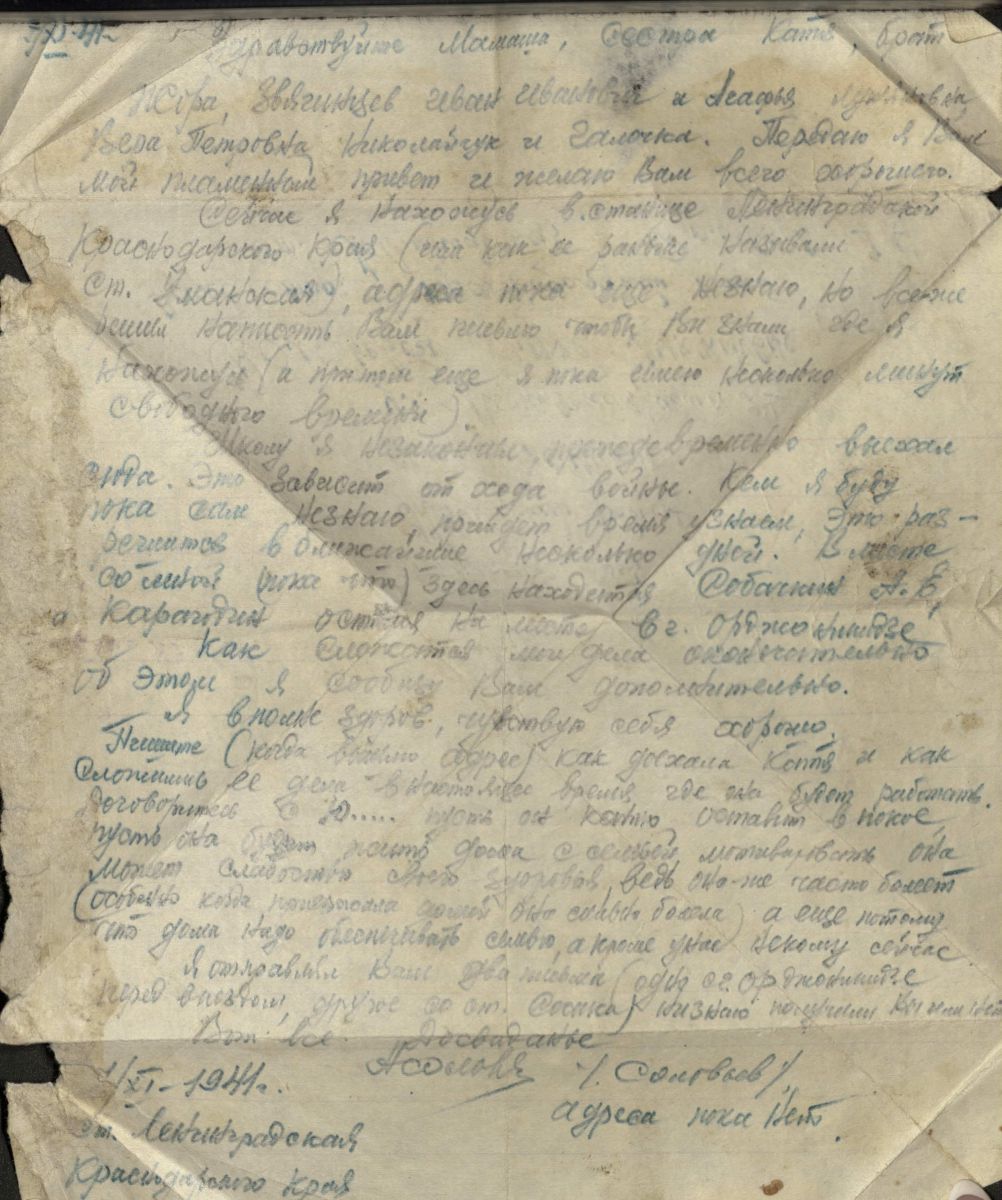 XI-41г
Здравствуйте Мамаша, сестра Катя, брат
Жора, Звягинцев Иван Иванович и Агафья
Вера Петровна Николайчук и Галочка. Передаю я Вам
мой пламенный привет и желаю Вам всего хорошего.
Сейчас я нахожусь в станице Ленинградской
Краснодарского Края (она как и раньше называли
ст. Уманская), адреса пока еще незнаю, но все-же
решил написать Вам письмо чтобы Вы знали где я
нахожусь (и притом еще я пока имею несколько минут
свободного времени).
Школу я незакончил, выехал
сюда. Это зависит от хода войны. Кем я буду
пока сам незнаю, пройдет время узнаем, это раз-
решится в ближайшие несколько дней. Вместе
со мной (пока что) здесь находется Собачкин А.Е,
а Карагодин остался на месте в г. Орджоникидзе
Как сложатся мои дела окончательно
об этом я сообщу Вам дополнительно.
Я вполне здоров, чувствую себя хорошо.
Пишите (когда вышлю адрес) как доехала Катя и как
сложились ее дела в настоящее время где она будет работать.
Договоритесь с Ю..... пусть он Катю оставит в покое,
пусть она будет жить дома с семьей, мотивировать она
может слабостью своего здоровья, ведь она-же часто болеет
(особенно когда приезжала домой она сильно болела) а еще потому
что дома надо обеспечивать семью, а кроме у нас некому сейчас
Я отправлял Вам два письма (одно с г. Орджоникидзе
перед выездом, другое со ст. Сосыка) незнаю получили Вы или нет
Вот и все. Досвиданье
/Соловьев/
XI-1941г.
адреса пока нет.
ст. Ленинградская
Краснодарского Края